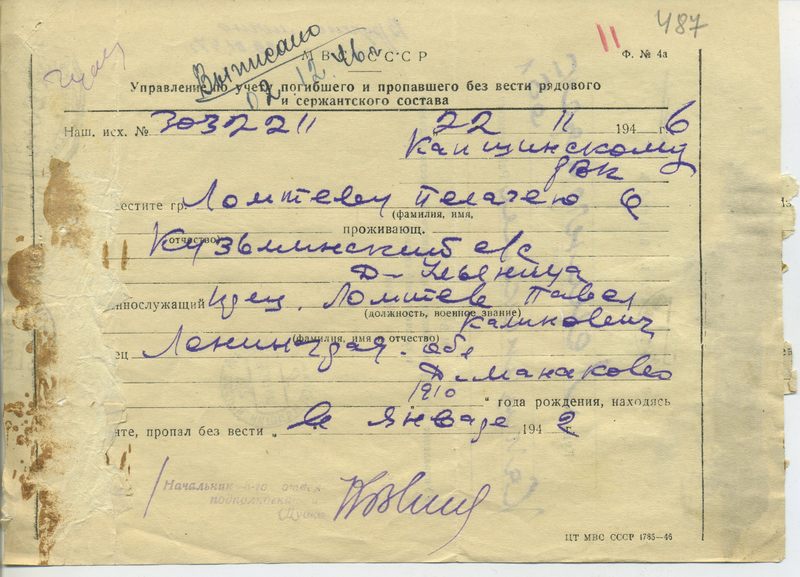 11 487
Выписано
02.12.46г
МВС СССР Ф. № 4а
Управление по учету погибшего и пропавшего без вести рядового
и сержантского состава
Наш. исх. № 303221 22 11 1946 г.
Капшинскому
РВК
естите гр. Ломтеву Пелагею Ф
(фамилия, имя,
проживающ.
отчество)
Кузьминский с/с
д-Ульяница
ннослужащий кр-ец. Ломтев Павел
(должность, военное звание)
Каликович
(фамилия, имя отчество)
ец Ленинград. обл
д-Манаково
1910
" года рождения, находясь
нте, пропал без вести „ в январе 1942 г.
Начальник 4-го отдела
подполковник
ЦТ МВС СССР 1785—46